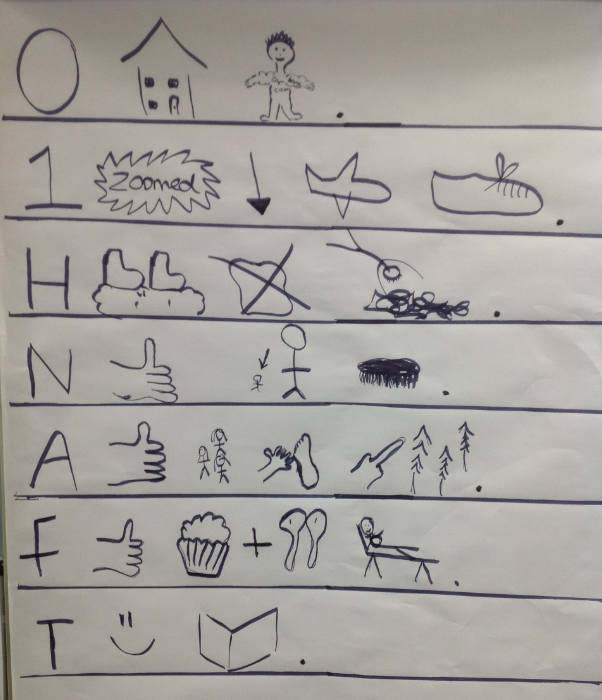 O .
1 Zoomed .
H .
N .
A .
F + .
T .